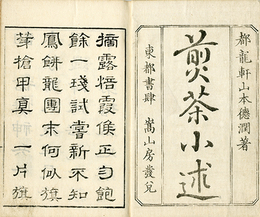 都龍軒山本德潤著
煎茶小述
東都書肆 嵩山房發兌
摘露焙霞候正勻飽
餘一琖試嘗新不知
鳳餅龍團末何似旗
芽槍甲真 一片